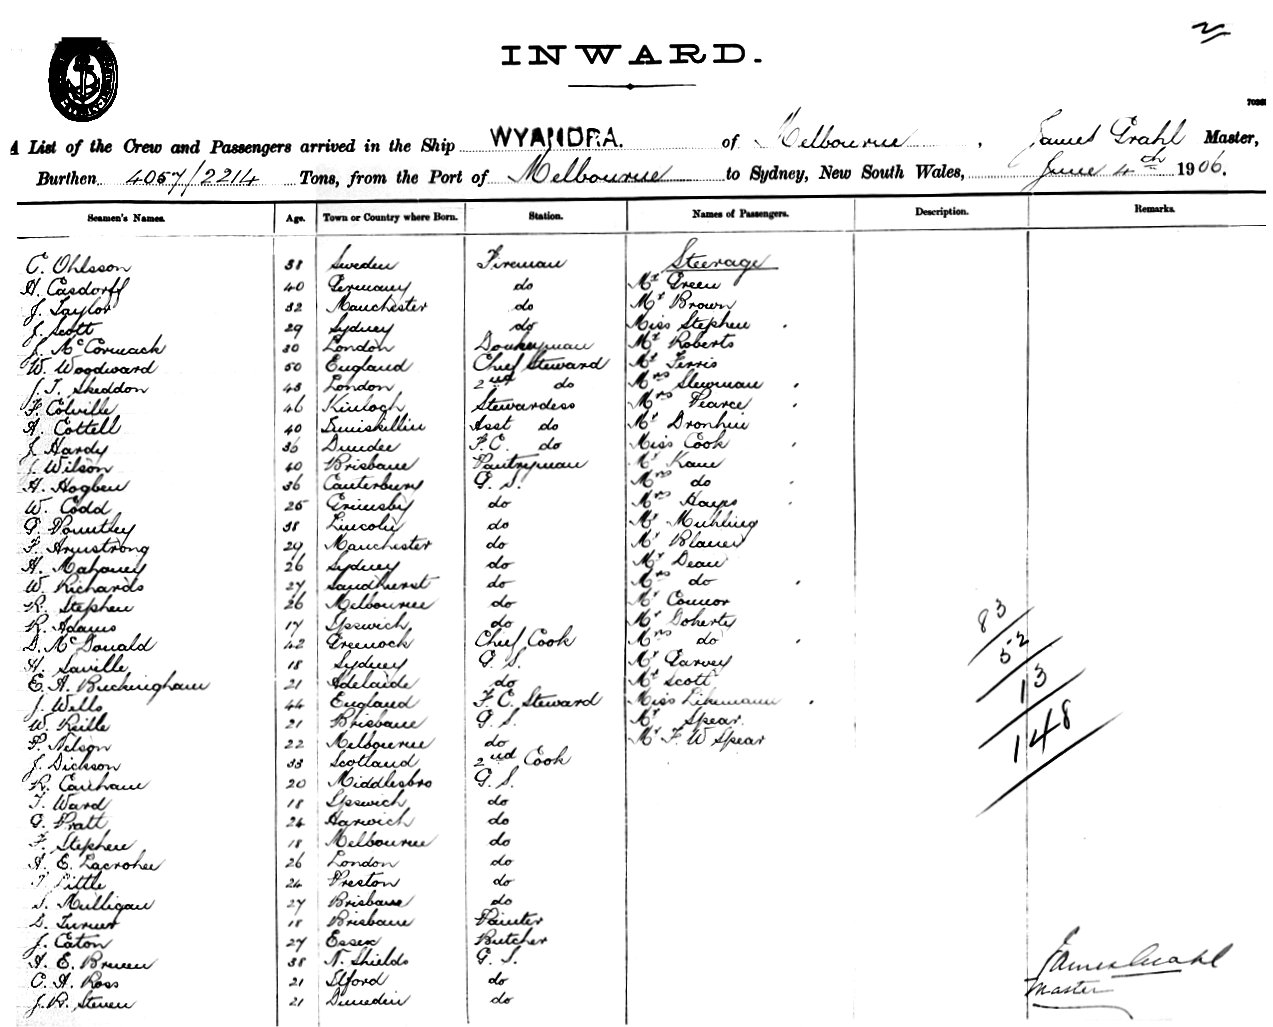 2
INWARD.
A List of the Crew and Passengers arrived in the Ship WYANDRA. of Melbourne, James Grahl Master,
Burthen 4057/2214 Tons, from the Port of Melbourne to Sydney, New South Wales, June 4th 1906.
Seamen's Names. Age. Town or Country where Born. Station. Names of Passengers. Description. Remarks.
C. Ohlsson 38 Sweden Fireman Steerage
H. Casdorff 40 Germany do Mr Green
J. Taylor 32 Manchester do Mr Brown
J. Scott 29 Sydney do Miss Stephen
J. McCormack 30 London Donkeyman Mr Roberts
W. Woodward 50 England Chief Steward Mr Ferris
J. T. Skeddon 43 London 2nd do Mrs Slewman
F. Colville 46 Kinloch Stewardess Mrs Pearce
A. Cottell 40 Enniskillin Asst do Mr Dronhin
J. Hardy 36 Dundee F.C. do Miss Cook
J. Wilson 40 Brisbane Pantryman Mr Kane
H. Hogben 36 Canterbury G. S. Mrs do
W. Codd 25 Grimsby do Mrs Hays
G. Pountley 38 Lincoln do Mr Muhling
F. Armstrong 29 Manchester do Mr Blauer
H. Mahoney 26 Sydney do Mr Dean
W. Richards 27 Sandhurst do Mrs do
R. Stephen 26 Melbourne do Mr Connor
R. Adams 17 Ipswich do Mr Doherty
D. McDonald 42 Greenock Chief Cook Mrs do
H. Saville 18 Sydney G. S. Mr Garvey
E. A. Buckingham 21 Adelaide do Mr Scott
J. Wells 44 England F. C. Steward Miss Likemann
W. Keille 21 Brisbane G. S. Mr Spear
P. Nelson 22 Melbourne do Mr F. W Spear
J. Dickson 33 Scotland 2nd Cook
R. Earham 20 Middlesbro G. S.
T. Ward 18 Ipswich do
G. Pratt 24 Harwich do
F. Stephen 18 Melbourne do
A. E. Lacrohee 26 London do
T. Little 24 Preston do
D. Mulligan 27 Brisbane do
D. Turner 18 Brisbane Painter
J. Eaton 27 Essex Butcher
A. E. Breuen 38 N. Shields G. S.
C. A. Ross 21 Ilford do
J. R. Steven 21 Dunedin do
83
52
13
148
James Grahl
Master